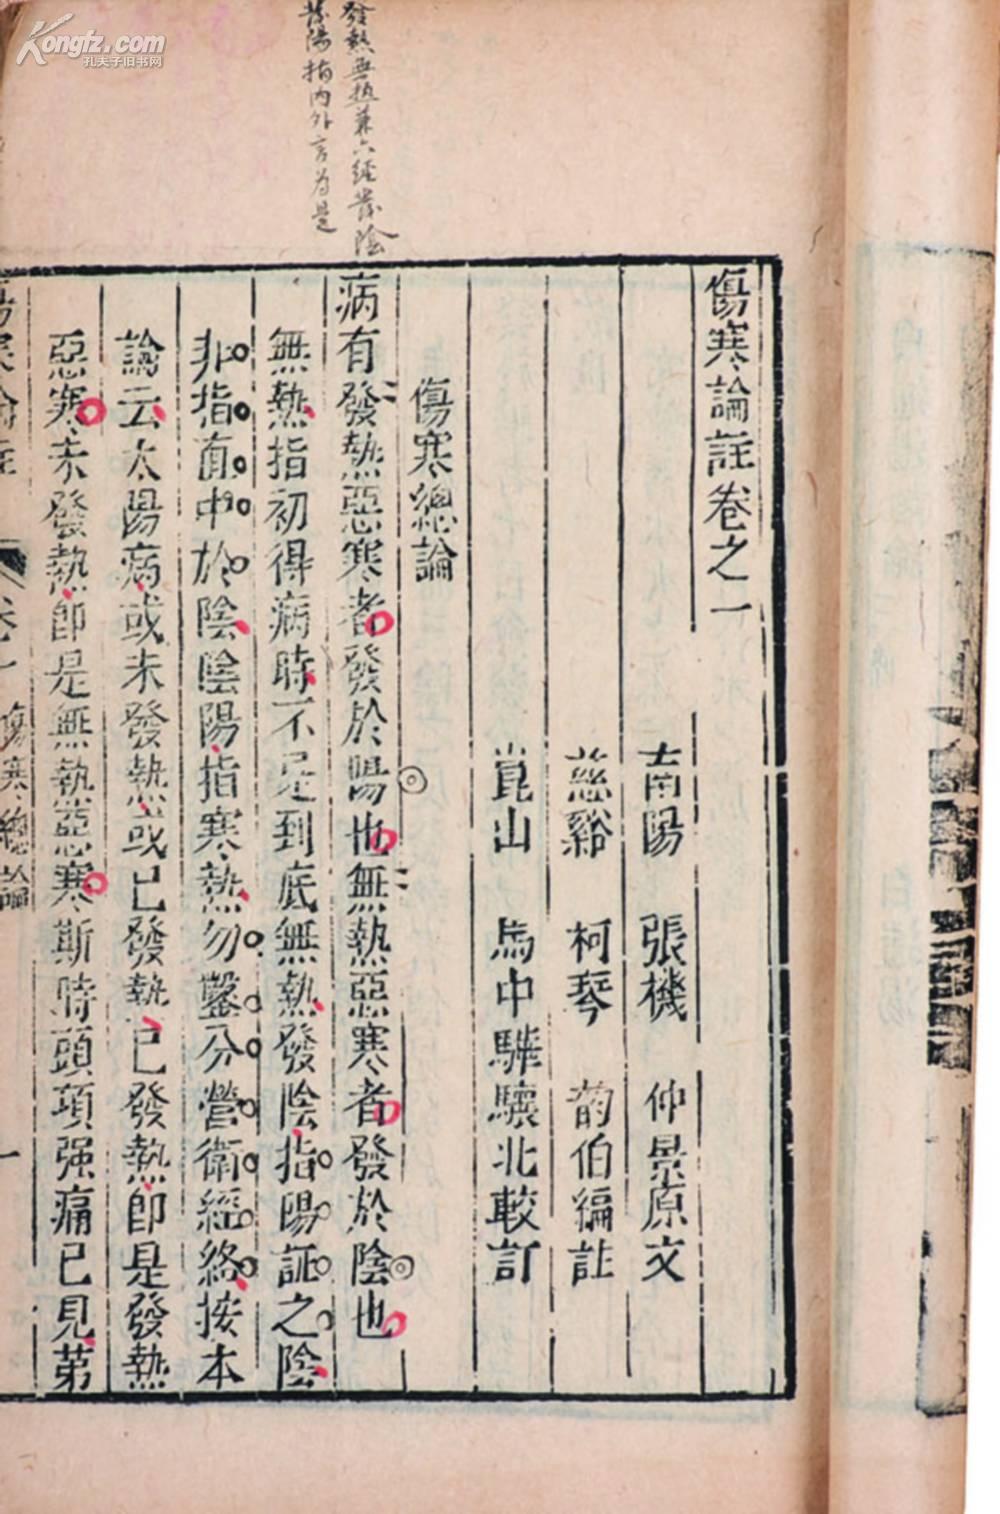 Kongfz.com
孔夫子旧书网
發熱無热兼六經發陰
發陽指內外言为是
傷寒論註卷之一
南陽 張機 仲景原文
慈谿 柯琴 韵伯編註
崑山 馬中驊驤北較訂
傷寒總論
病有發熱惡寒者發於陽也無熱惡寒者發於陰也
無熱指初得病時不是到底無熱發陰指陽証之陰
非指直中於陰陰陽指寒熱勿鑿分營衛經絡按本
論云太陽病或未發熱或已發熱已發熱即是發熱
惡寒未發熱即是無熱惡寒斯時頭項强痛已見第
傷寒論註 卷一 傷寒總論 一